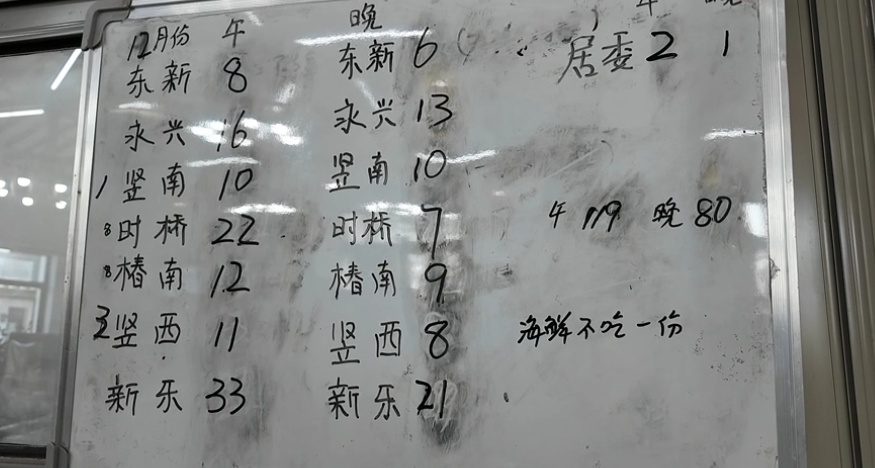 12月份 午
东新 8
永兴 16
1 竖南 10
8 时桥 22
8 椿南 12
3 竖西 11
新乐 33
晚
东新 6
永兴 13
竖南 10
时桥 7
椿南 9
竖西 8
新乐 21
午 晚
居委 2 1
午 119 晚 80
海鲜不吃一份